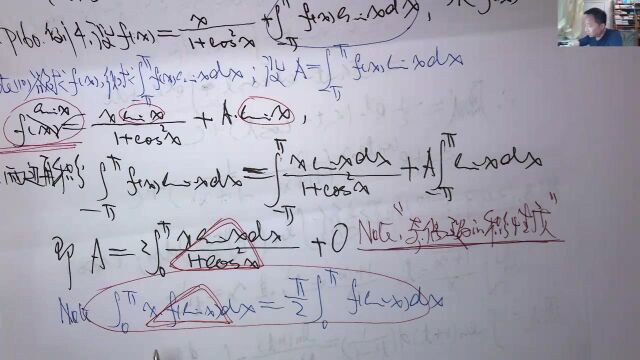 P160.例14.设f(x)=x/(1+cos²x)+∫_{-π}^{π}f(x)sinxdx,求f(x)
欲求f(x),须求∫_{-π}^{π}f(x)sinxdx,设A=∫_{-π}^{π}f(x)sinxdx
f(x)sinx=xsinx/(1+cos²x)+A·sinx,
两边再积分∫_{-π}^{π}f(x)sinxdx=∫_{-π}^{π}xsinxdx/(1+cos²x)+A∫_{-π}^{π}sinxdx
即A=2∫_0^π xsinxdx/(1+cos²x)+0 Note:"奇偶函数的积分性质"
Note ∫_0^π xf(sinx)dx=π/2∫_0^π f(sinx)dx